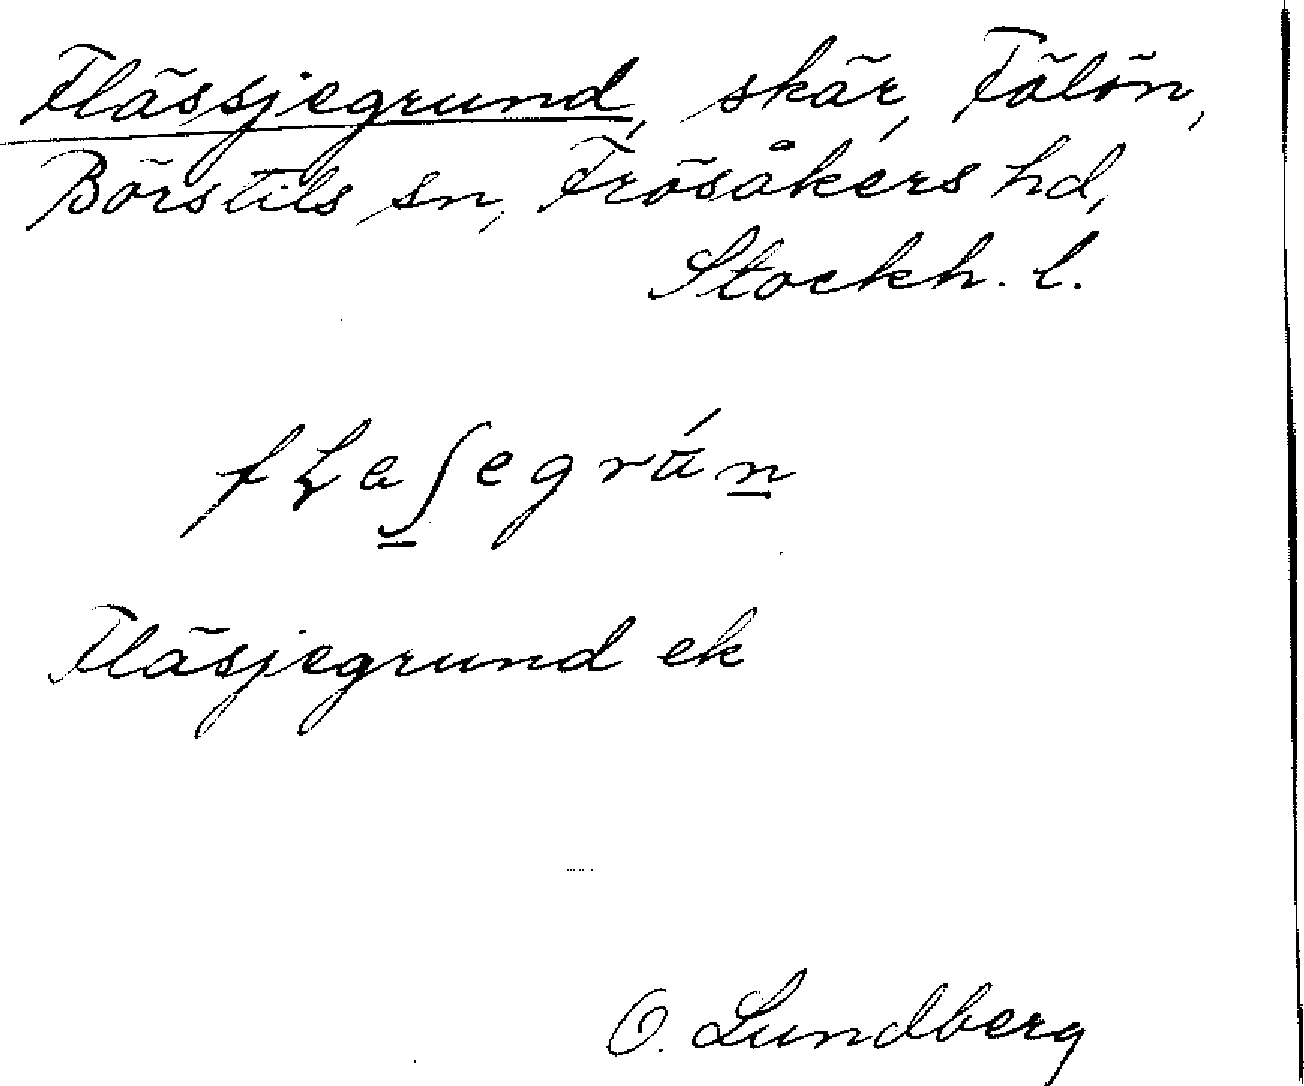 Flässjegrund, skär, Fälön,
Börstils sn, Frösåkers hd,
Stockh. l.
fLaʃegrún
Fläsjegrund ek
O. Lundberg